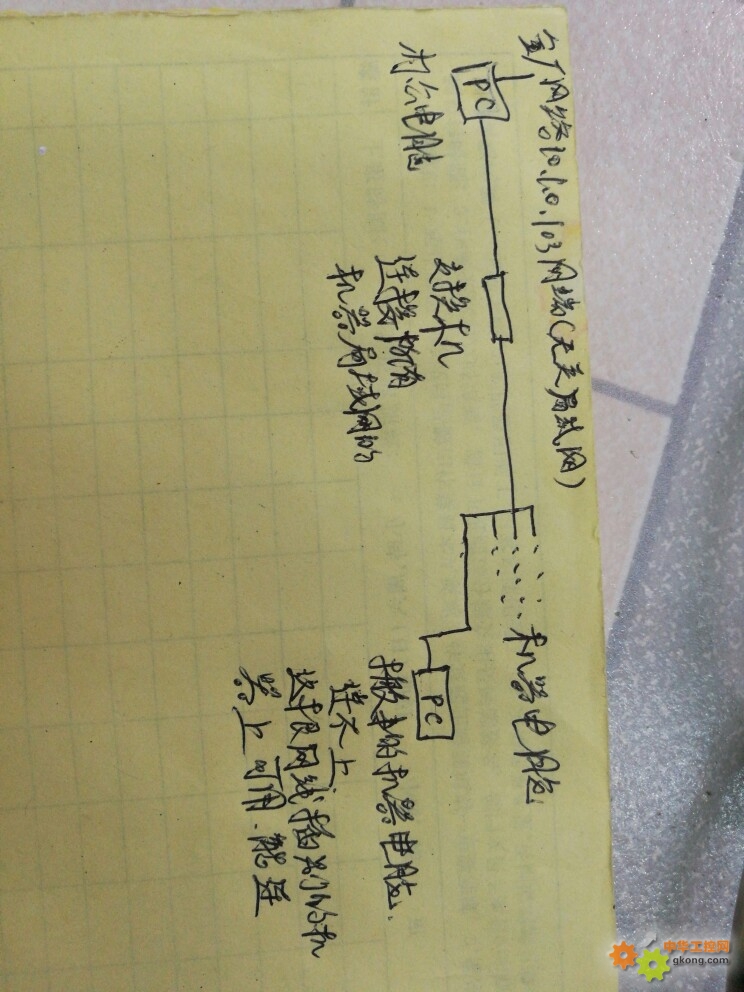 全厂网络10.10.103网端(无关局域网)
PC
办公电脑
交换机
连接所有
机器局域网的
机器电脑
PC
搬去的机器电脑.
连不上
这段网线插别的机
器上可用.能连
中华工控网
gkong.com